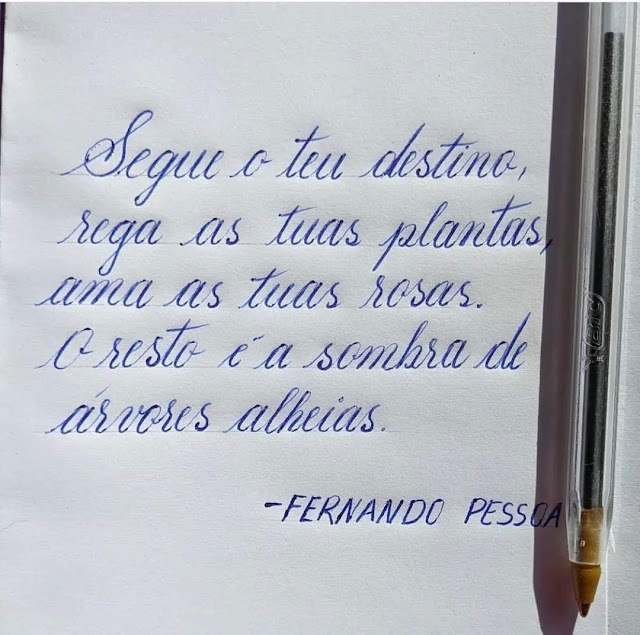 Segue o teu destino,
rega as tuas plantas,
ama as tuas rosas.
O resto é a sombra de
árvores alheias.
-FERNANDO PESSOA
BIC